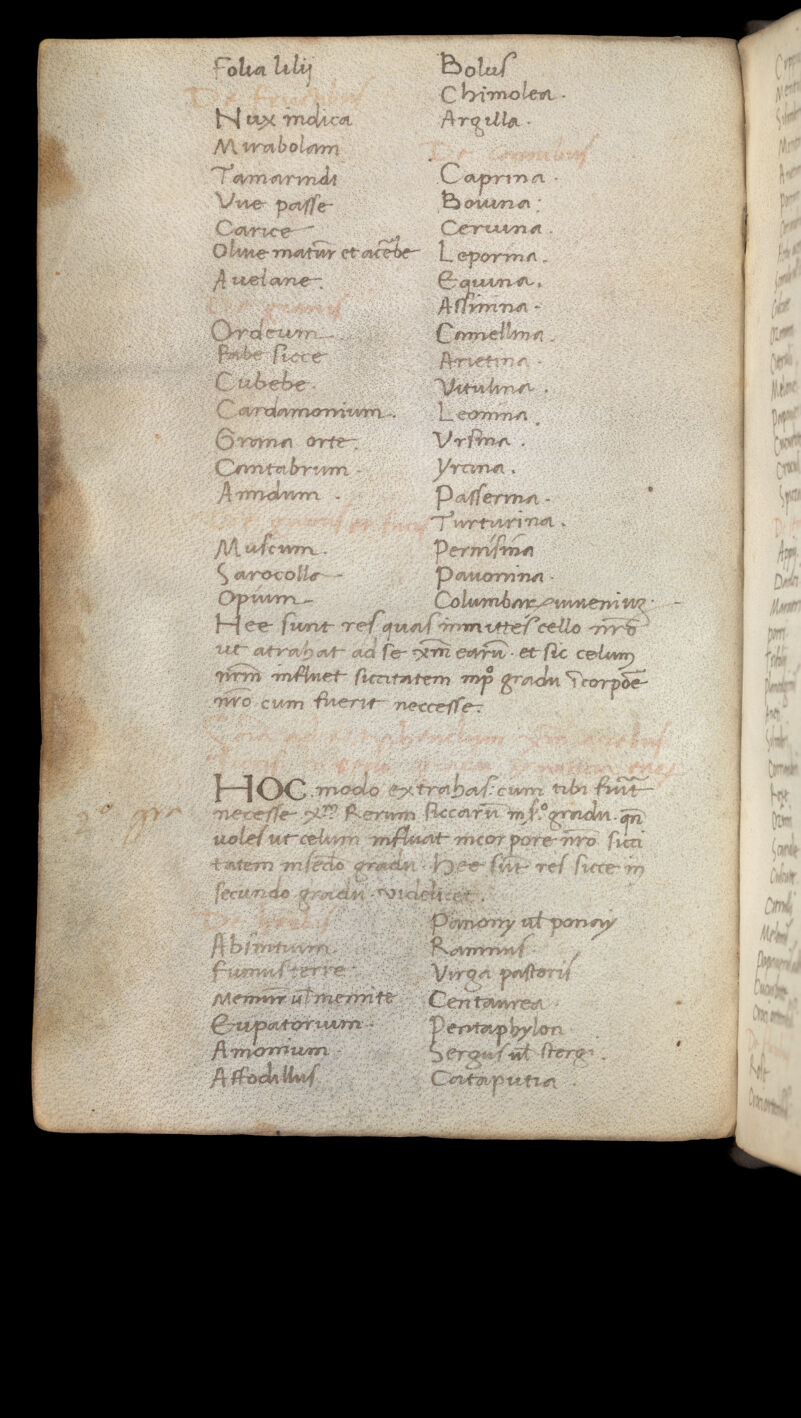 Folia lilij
De fructibus
Nux indica
Mirabolani
Tamarindi
Vue passe
Carice
Oliue matur̄ et acerbe
Auelane.
De granis
Ordeum
Fabe sicce
Cubebe.
Cardamonium.
Grana orte.
Cantabrum.
Amidum.
De gumis et
Muscum.
Sarocolla
Opium
Bolus
Chimolea.
Argilla.
De carnibus
Caprina.
Bouina.
Ceruina.
Leporina.
Equina.
Assinina
Camellina.
Arietina.
Vitulina.
Leonina.
Vrsina.
Yrcina.
Passerina.
Turturina.
Pernisina
Pauonina.
Columbar
Hee sunt res quas inmittes cello nr̄o
ut atrahat ad se xm̄ earū. et sic celum
nr̄m influet siccitatem in pº gradu ī corpōe
nr̄o cum fuerit neccesse.
ad
HOC modo extrahas: cum tibi fuīt
necesse Rerum siccarū in sº gradu. qn̄
uoles ut celum influat in corpore nr̄o sicci
tatem in secdo gradu. Hee sūt res sicce in
secundo gradu videlicet.
2º gr
De herbis
Absintium.
Fumus terre.
Eupatorium.
Amonium.
Affodillus
Ramnus.
Virga pastoris
Centaurea.
Pentaphylon
Cataputia.